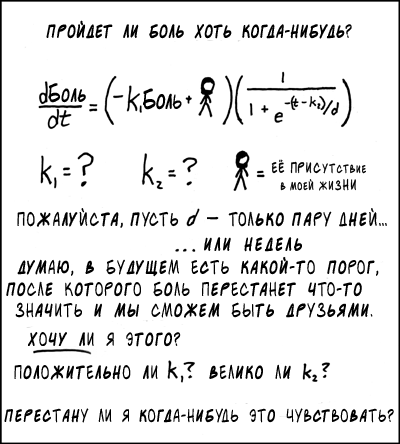 ПРОЙДЕТ ЛИ БОЛЬ ХОТЬ КОГДА-НИБУДЬ?
dБОЛЬ/dt = (-k₁БОЛЬ + )(1/(1 + e^(-(t-k₂)/d)))
k₁ = ? k₂ = ? = ЕЁ ПРИСУТСТВИЕ
В МОЕЙ ЖИЗНИ
ПОЖАЛУЙСТА, ПУСТЬ d – ТОЛЬКО ПАРУ ДНЕЙ...
... ИЛИ НЕДЕЛЬ
ДУМАЮ, В БУДУЩЕМ ЕСТЬ КАКОЙ-ТО ПОРОГ,
ПОСЛЕ КОТОРОГО БОЛЬ ПЕРЕСТАНЕТ ЧТО-ТО
ЗНАЧИТЬ И МЫ СМОЖЕМ БЫТЬ ДРУЗЬЯМИ.
ХОЧУ ЛИ Я ЭТОГО?
ПОЛОЖИТЕЛЬНО ЛИ k₁? ВЕЛИКО ЛИ k₂?
ПЕРЕСТАНУ ЛИ Я КОГДА-НИБУДЬ ЭТО ЧУВСТВОВАТЬ?